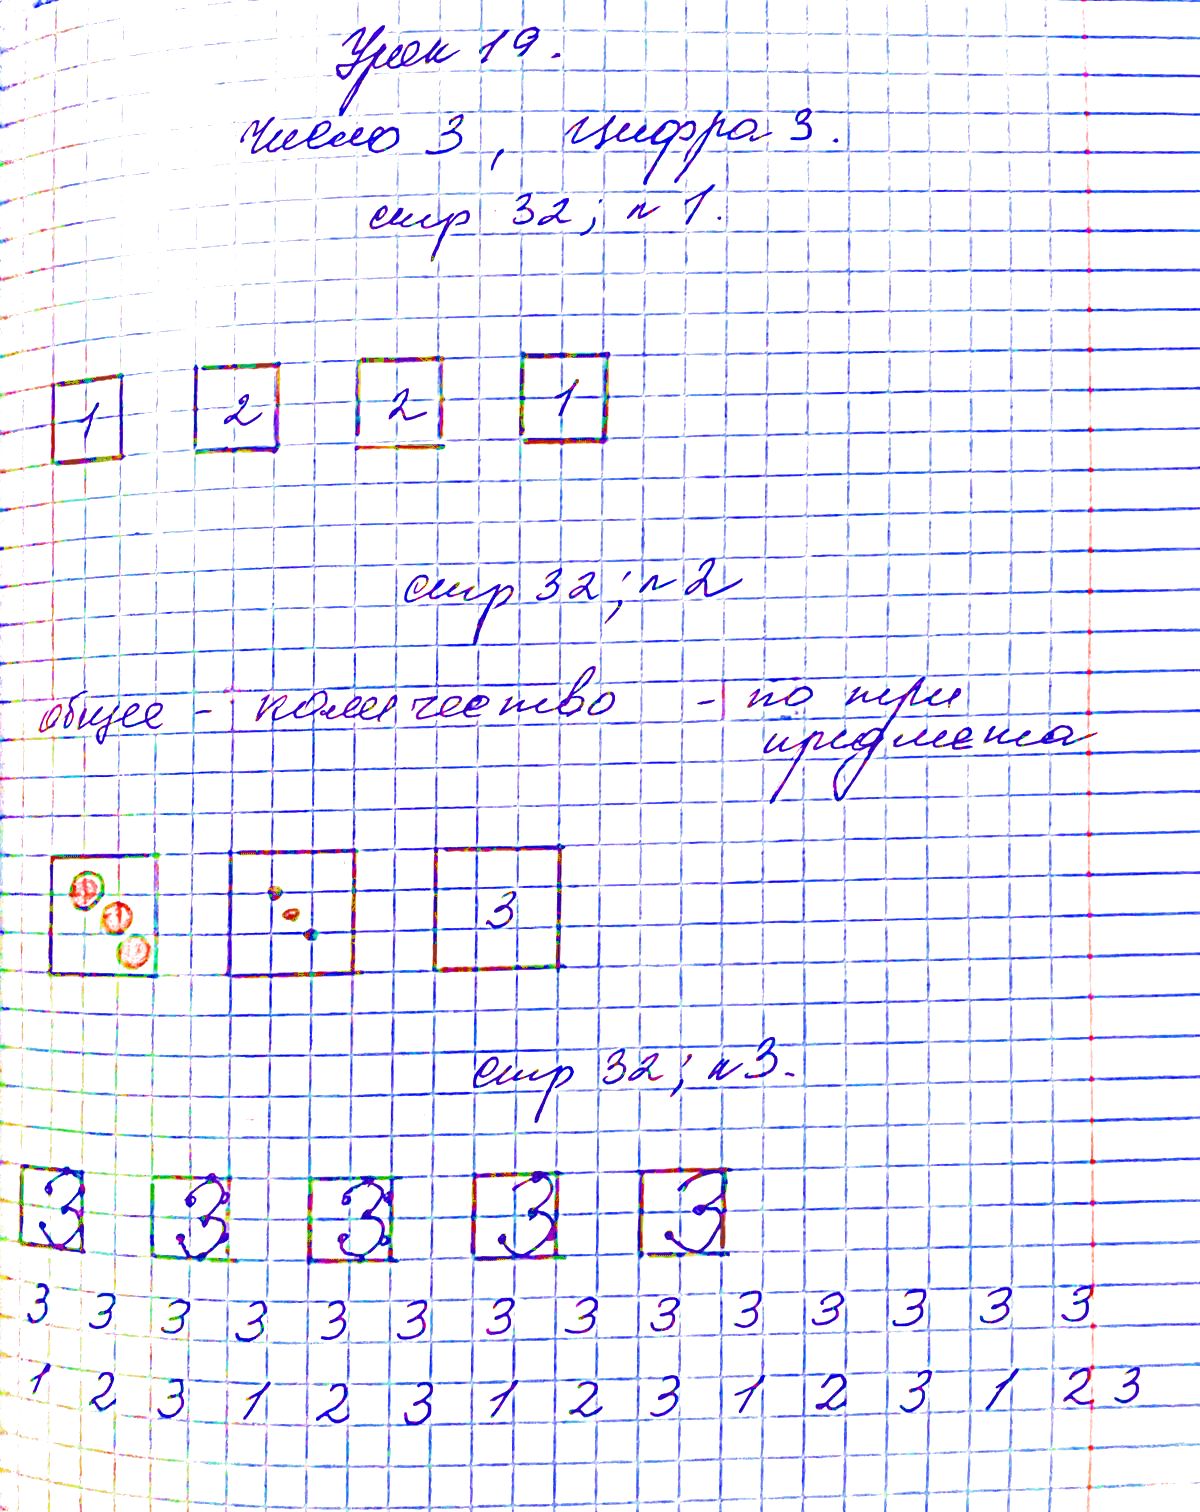 Урок 19.
Число 3, Цифра 3.
стр 32; n 1.
1 2 2 1
стр 32; n 2
общее - количество - по три
предмета
3
стр 32; n 3.
3 3 3 3 3
3 3 3 3 3 3 3 3 3 3 3 3 3 3
1 2 3 1 2 3 1 2 3 1 2 3 1 2 3